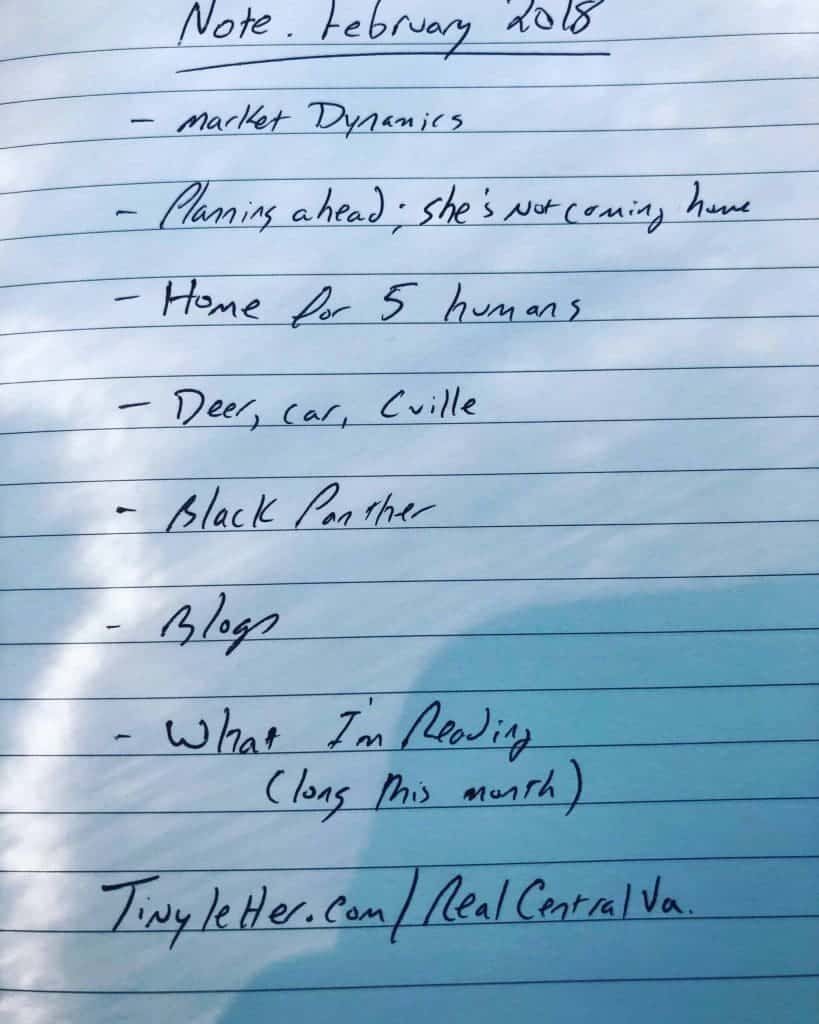 Note. February 2018
- Market Dynamics
- Planning ahead; she's Not coming home
- Home for 5 humans
- Deer, car, Cville
- Black Panther
- Blogs
- What I'm Reading
(long this month)
Tinyletter.com/RealCentralVa.